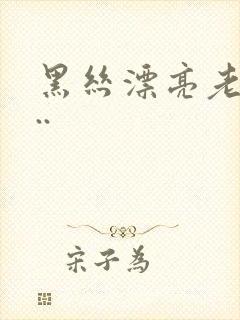 黑丝漂亮老
..
宋子為